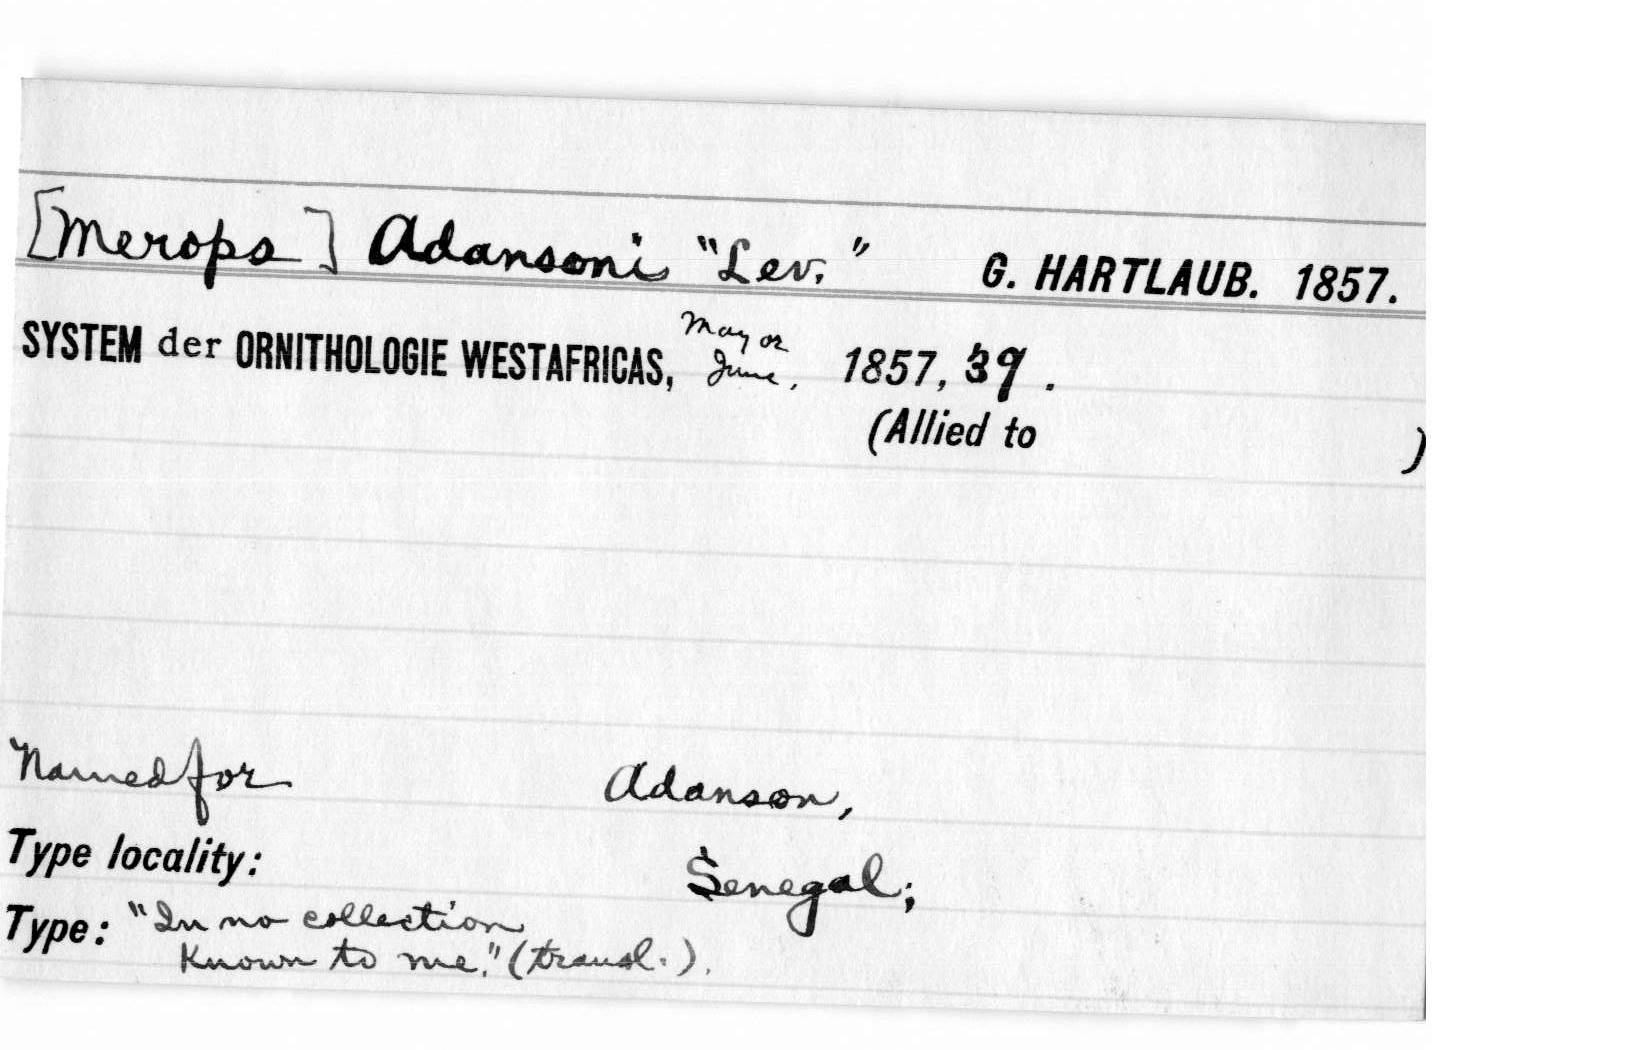 [Merops] Adansoni "Lev." G. HARTLAUB. 1857.
SYSTEM der ORNITHOLOGIE WESTAFRICAS, May or June, 1857, 39.
(Allied to )
Named for Adanson,
Type locality: Senegal;
Type: "In no collection
Known to me." (transl.).